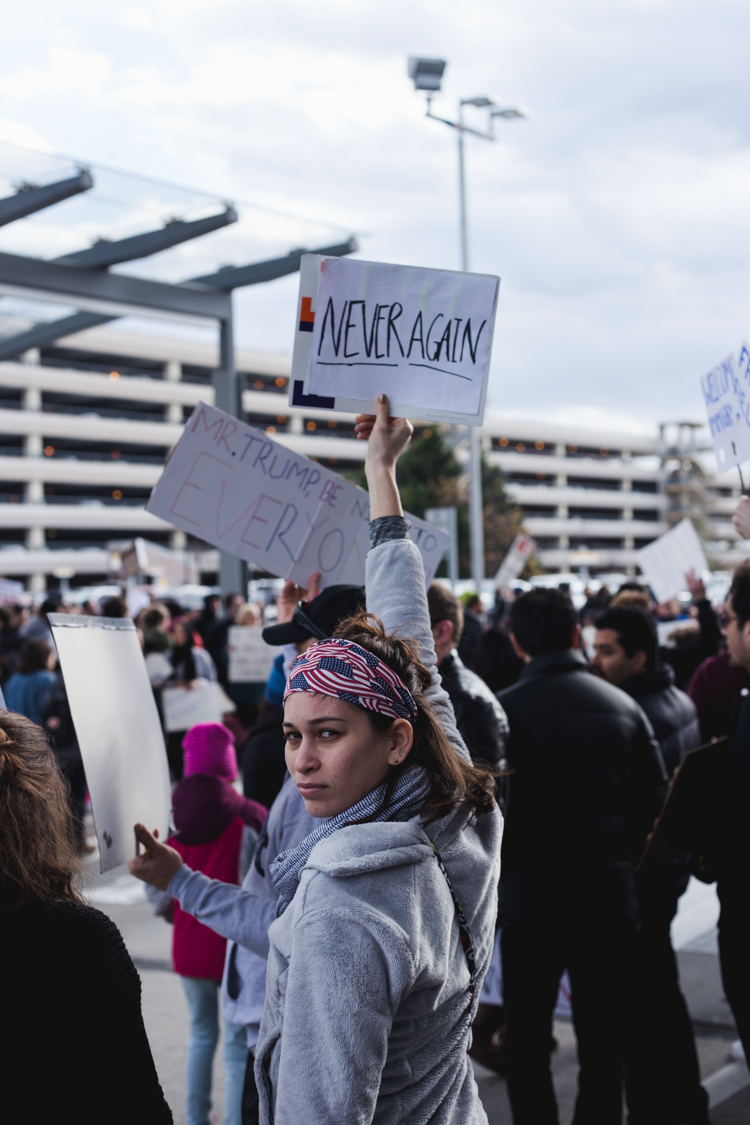 NEVER AGAIN
MR. TRUMP, BE
EVERYO
TO
WELCOME